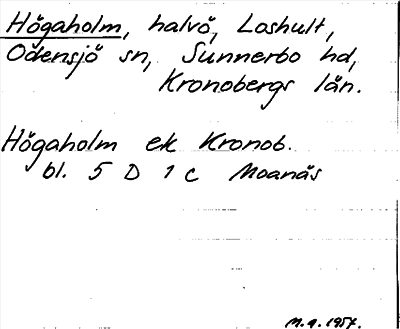 Högaholm, halvö, Loshult,
Odensjö sn, Sunnerbo hd,
Kronobergs län.
Högaholm ek Kronob.
bl. 5 D 1 c Moanäs
M.a. 1957.